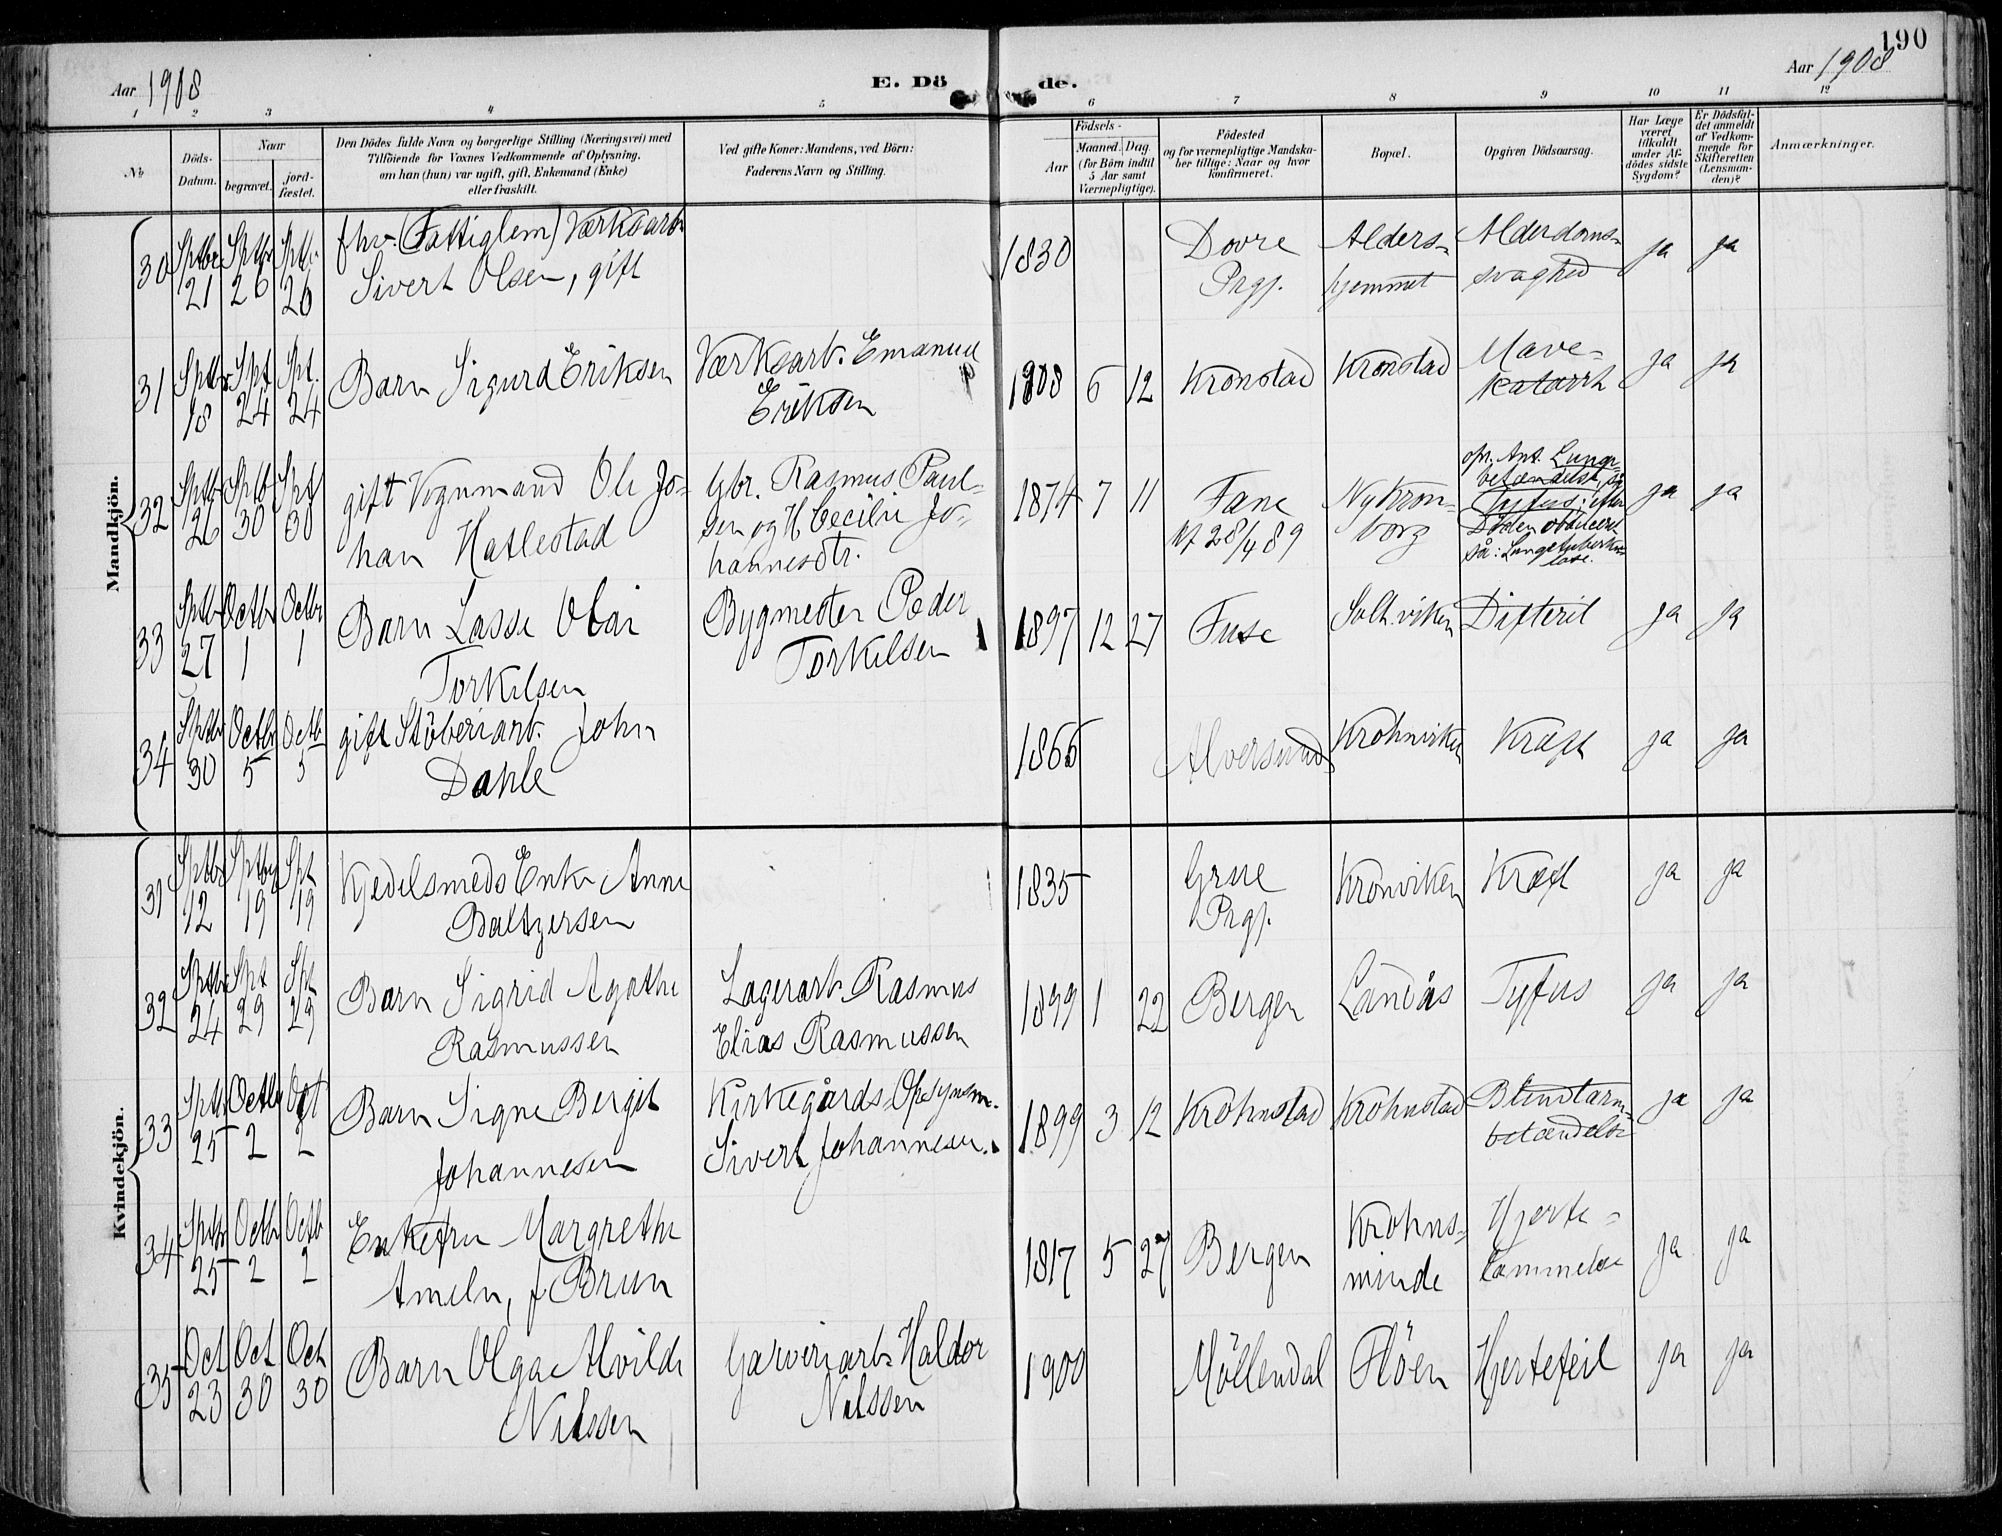 190
Aar 1908
E. Dö de.
Aar 1908
1 2 3 4 5 6 7 8 9 10 11 12
No
Döds-
Datum.
Naar
begravet.
jord-
fæstet.
Den Dödes fulde Navn og borgerlige Stilling (Næringsvei) med
Tilföiende for Voxnes Vedkommende af Oplysning,
om han (hun) var ugift, gift, Enkemand (Enke)
eller fraskilt.
Ved gifte Koner: Mandens, ved Börn:
Faderens Navn og Stilling.
Födsels-
Aar
Maaned. Dag.
(for Börn indtil
5 Aar samt
Værnepligtige).
Födested
og for værnepligtige Mandska-
ber tillige: Naar og hvor
konfirmeret.
Bopæl.
Opgiven Dödsaarsag.
Har Læge
været
tilkaldt
under Af-
dödes sidste
Sygdom?
Er Dödsfal-
det anmeldt
af Vedkom-
mende for
Skifteretten
(Lensman-
den)?
Anmærkninger.
Mandkjön.
30 Sptbr 21 Sptbr 26 Sptb. 26
fhv. (Fattiglem) Værksarb.
Sivert Olsen, gift
1830
Dovre
Prgj.
Alders-
hjemmet
Alderdoms-
svaghed
ja ja
31 Sptbr 18 Spt 24 Spt. 24
Barn Sigurd Eriksen
Værksarb. Emanuel
Eriksen
1908 6 12
Kronstad
Kronstad
Mave-
katarrh
ja ja
32 Sptbr 26 Sptb 30 Spt 30
gift Vognmand Ole Jo-
han Hatlestad
Gbr. Rasmus Paul-
sen og H Cecilie Jo-
hannesdtr.
1874 7 11
Fane
kf 28/4 89
Ny Kron-
borg
opr. Ant. Lunge-
betændelse, så
Tyfus; efter
Döden obduceret
så: Lungetuberku-
lose.
ja ja
33 Sptbr 27 Octbr 1 Octbr 1
Barn Lasse Olai
Torkilsen
Bygmester Peder
Torkilsen
1897 12 27
Fuse
Solh.viken
Difterit
ja ja
34 Sptbr 30 Octbr 5 Octb 5
gift Stöberiarb. John
Dahle
1866
Alversund
Krohnviken
Kræft
ja ja
Kvindekjön.
31 Sptbr 12 Sptbr 19 Spt 19
Kjedelsmeds Enke Anne
Baltzersen
1835
Grue
Prgj.
Kronviken
Kræft
ja ja
32 Sptbr 24 Spt 29 Spt 29
Barn Sigrid Agathe
Rasmussen
Lagerarb. Rasmus
Elias Rasmussen
1899 1 22
Bergen
Landås
Tyfus
ja ja
33 Sptbr 25 Octbr 2 Oct 2
Barn Signe Bergit
Johannesen
Kirkegårds-Opsynsm.
Sivert Johannesen.
1899 3 12
Krohnstad
Krohnstad
Blindtarm-
betændelse
ja ja
34 Sptbr 25 Octbr 2 Octb 2
Enkefru Margrethe
Ameln, f Brun
1817 5 27
Bergen
Krohns-
minde
Hjerte-
lammelse
ja ja
35 Oct 23 Oct 30 Oct 30
Barn Olga Alvilde
Nilssen
Garveriarb. Haldor
Nilssen
1900
Möllendal
Flöen
Hjertefeil
ja ja